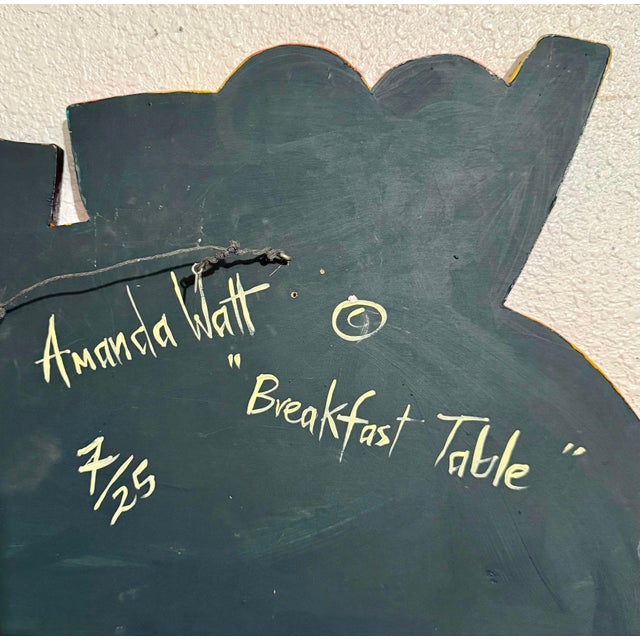 Amanda Watt
©
"Breakfast Table"
7/25